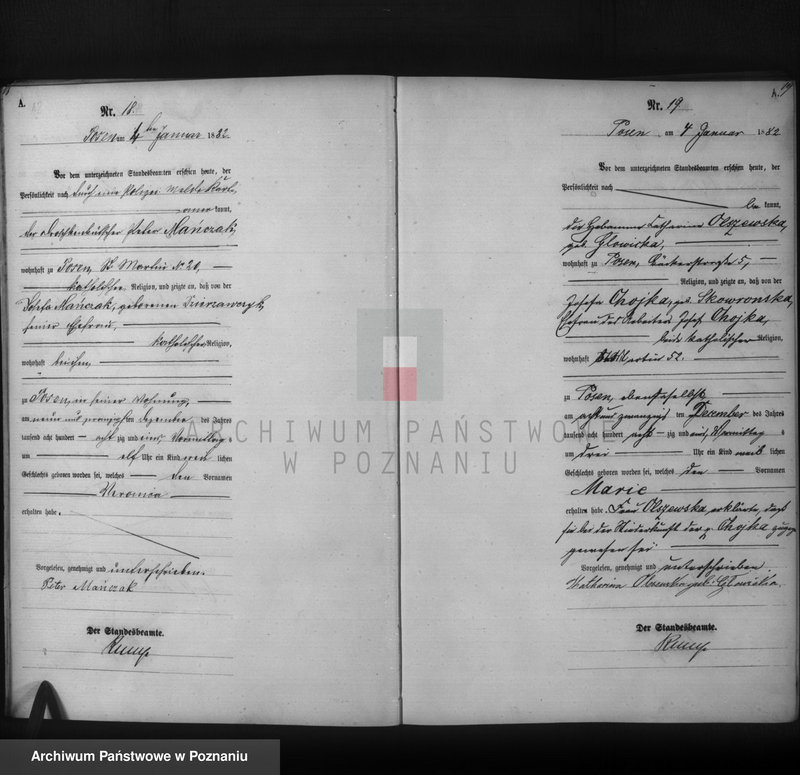 A.
Nr. 18.
Posen am 4ten Januar 1882.
Vor dem unterzeichneten Standesbeamten erschien heute, der
Persönlichkeit nach durch eine Polizei Melde Karte
kannt,
der Droschkenkutscher Peter Mańczak,
wohnhaft zu Posen St. Martin No 20,
katholischer Religion, und zeigte an, daß von der
Josefa Mańczak, geborenen
seiner Ehefrau,
katholischer Religion,
wohnhaft bei ihm,
zu Posen, in seiner Wohnung,
am neun und zwanzigsten Dezember des Jahres
tausend acht hundert acht zig und eins, Vormittag s
um elf Uhr ein Kind weib lichen
Geschlechts geboren worden sei, welches den Vornamen
Veronica
erhalten habe.
Vorgelesen, genehmigt und unterschrieben.
Peter Mańczak
Der Standesbeamte.
A. 19
Nr. 19.
Posen am 4 Januar 1882
Vor dem unterzeichneten Standesbeamten erschien heute, der
Persönlichkeit nach
be kannt,
die Hebamme Catharina Olszewska,
geb. Glowicka,
wohnhaft zu Posen, Bäckerstrasse 5,
Religion, und zeigte an, daß von der
Josefa Chojka, geb. Skowronska,
Ehefrau des Arbeiters Josef Chojka,
beide katholischer Religion,
wohnhaft St. Martin 52.
zu Posen, ebendaselbst
am acht und zwanzigsten Dezember des Jahres
tausend acht hundert acht zig und eins, Vormittag s
um drei Uhr ein Kind weib lichen
Geschlechts geboren worden sei, welches den Vornamen
Marie
erhalten habe. Frau Olszewska erklärte, daß
sie bei der Niederkunft der p. Chojka zugegen
gewesen sei.
Vorgelesen, genehmigt und unterschrieben
Katharina Olszewska geb. Głowicka.
Der Standesbeamte.
ARCHIWUM PAŃSTWOWE
W POZNANIU
Archiwum Państwowe w Poznaniu